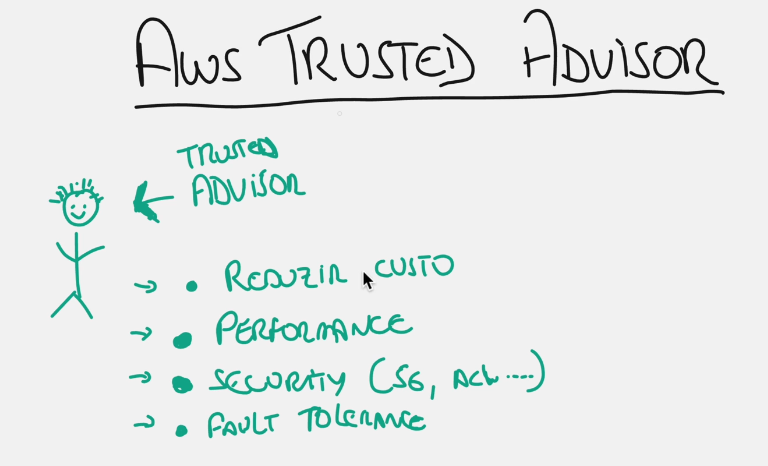 AWS TRUSTED ADVISOR
TRUSTED
ADVISOR
→ • REDUZIR CUSTO
→ • PERFORMANCE
→ • SECURITY (SG, ACL....)
→ • FAULT TOLERANCE